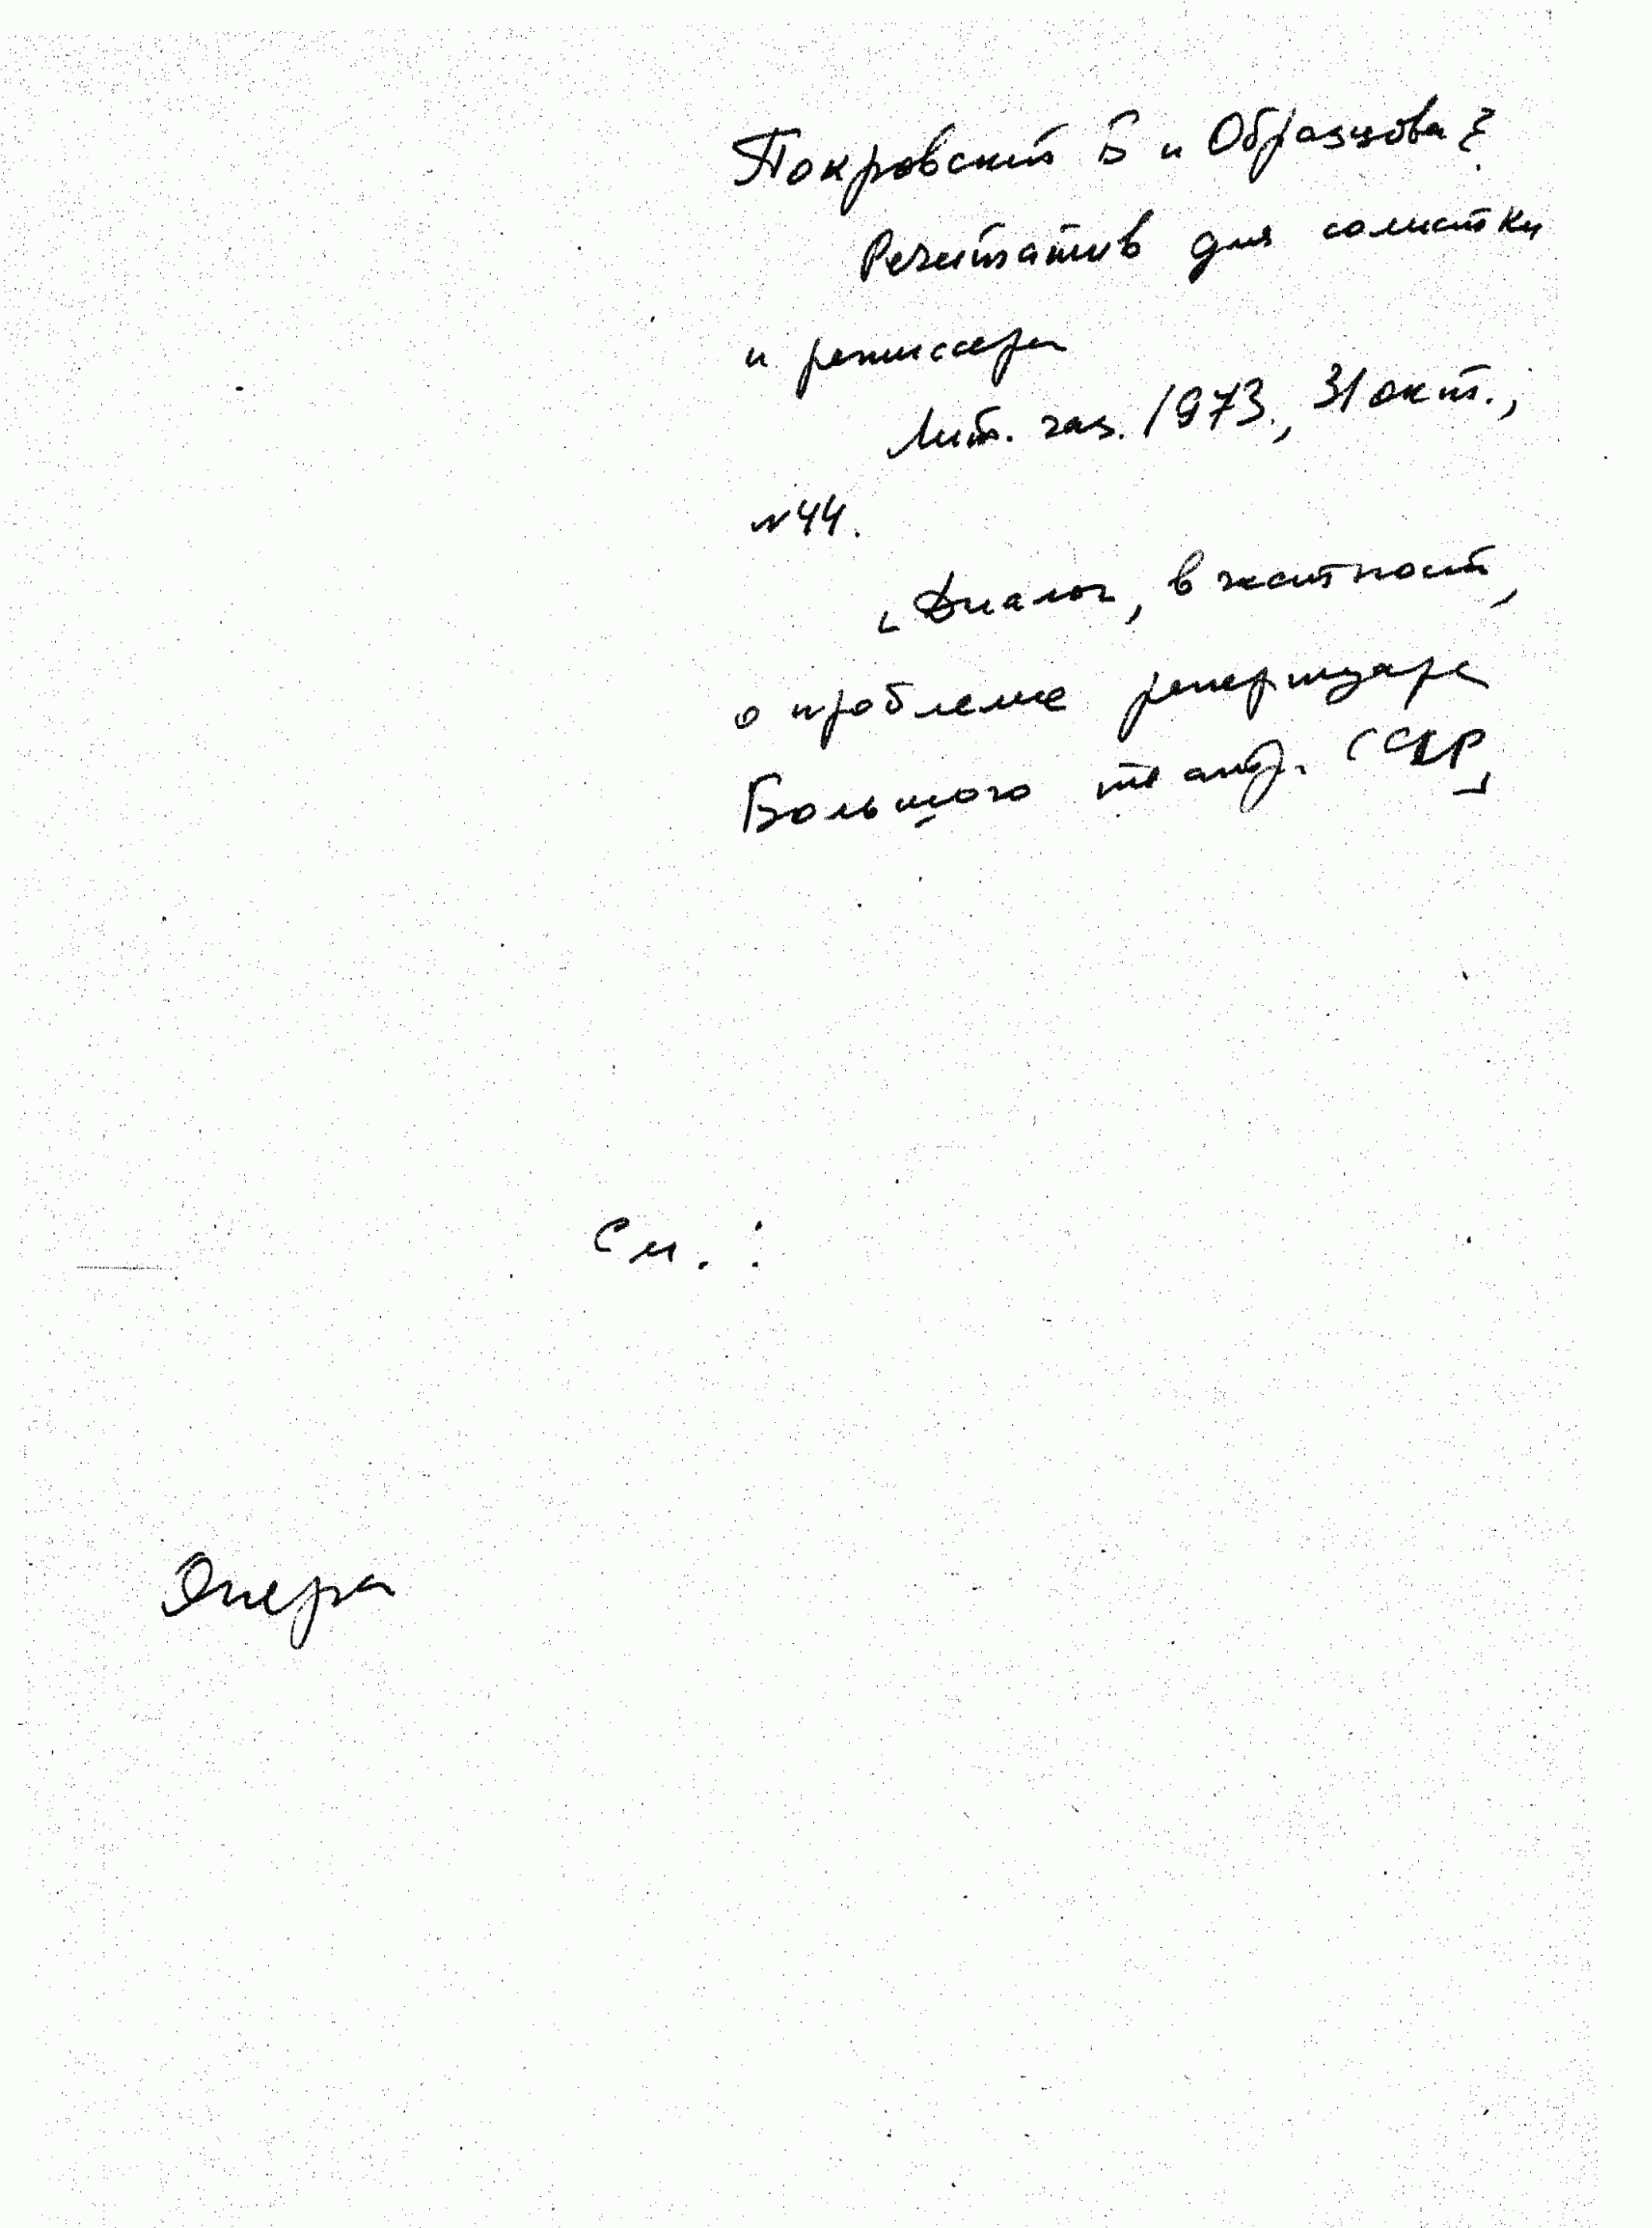 Покровский Б и Образцова Е.
Речитатив для солистки
и режиссера
Лит. газ. 1973., 31 окт.,
№ 44.
[Диалог, в частност,
о проблеме репертуара
Большого театр. СССР]
См. :
Опера